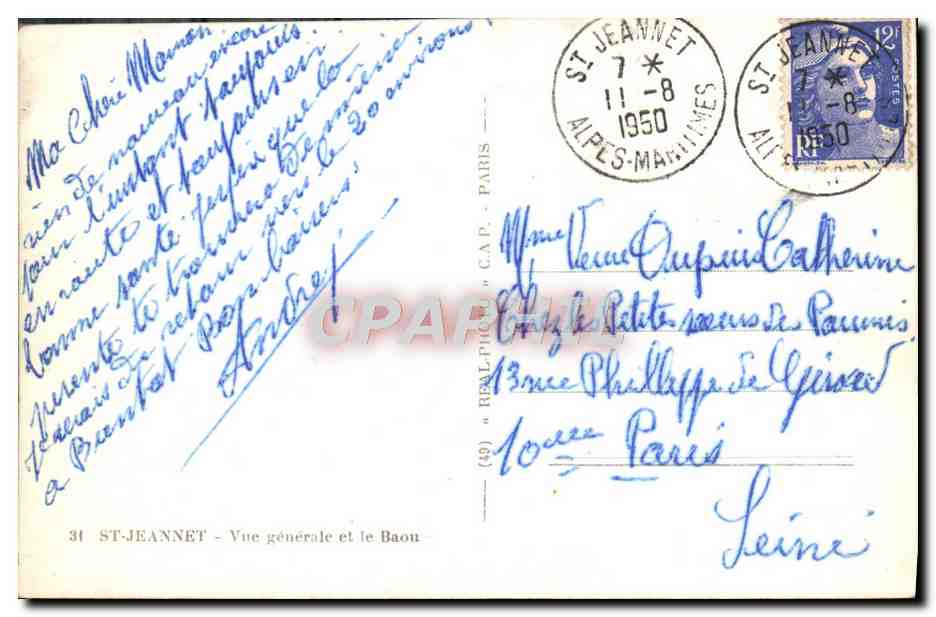 Ma Chère Maman
rien de nouveau encore
pour l'instant toujours
en route et toujours en
bonne santé j'espère que la
presente te trouvera De même
je serais du retour vers le 20 environ
a Bientot Bons baisers!
André
ST JEANNET
7 *
11 - 8
1950
ALPES-MARITIMES
ST JEANNET
7 *
11 - 8
1950
12F
POSTES
RF
Mme Veuve Catherine
Chez les Petites sœurs des Pauvres
13 rue Philleppe de Girard
10eme Paris
Seine
(49) « REAL-PHOTO » C.A.P. - PARIS
CPARAMA
31 ST-JEANNET - Vue générale et le Baou